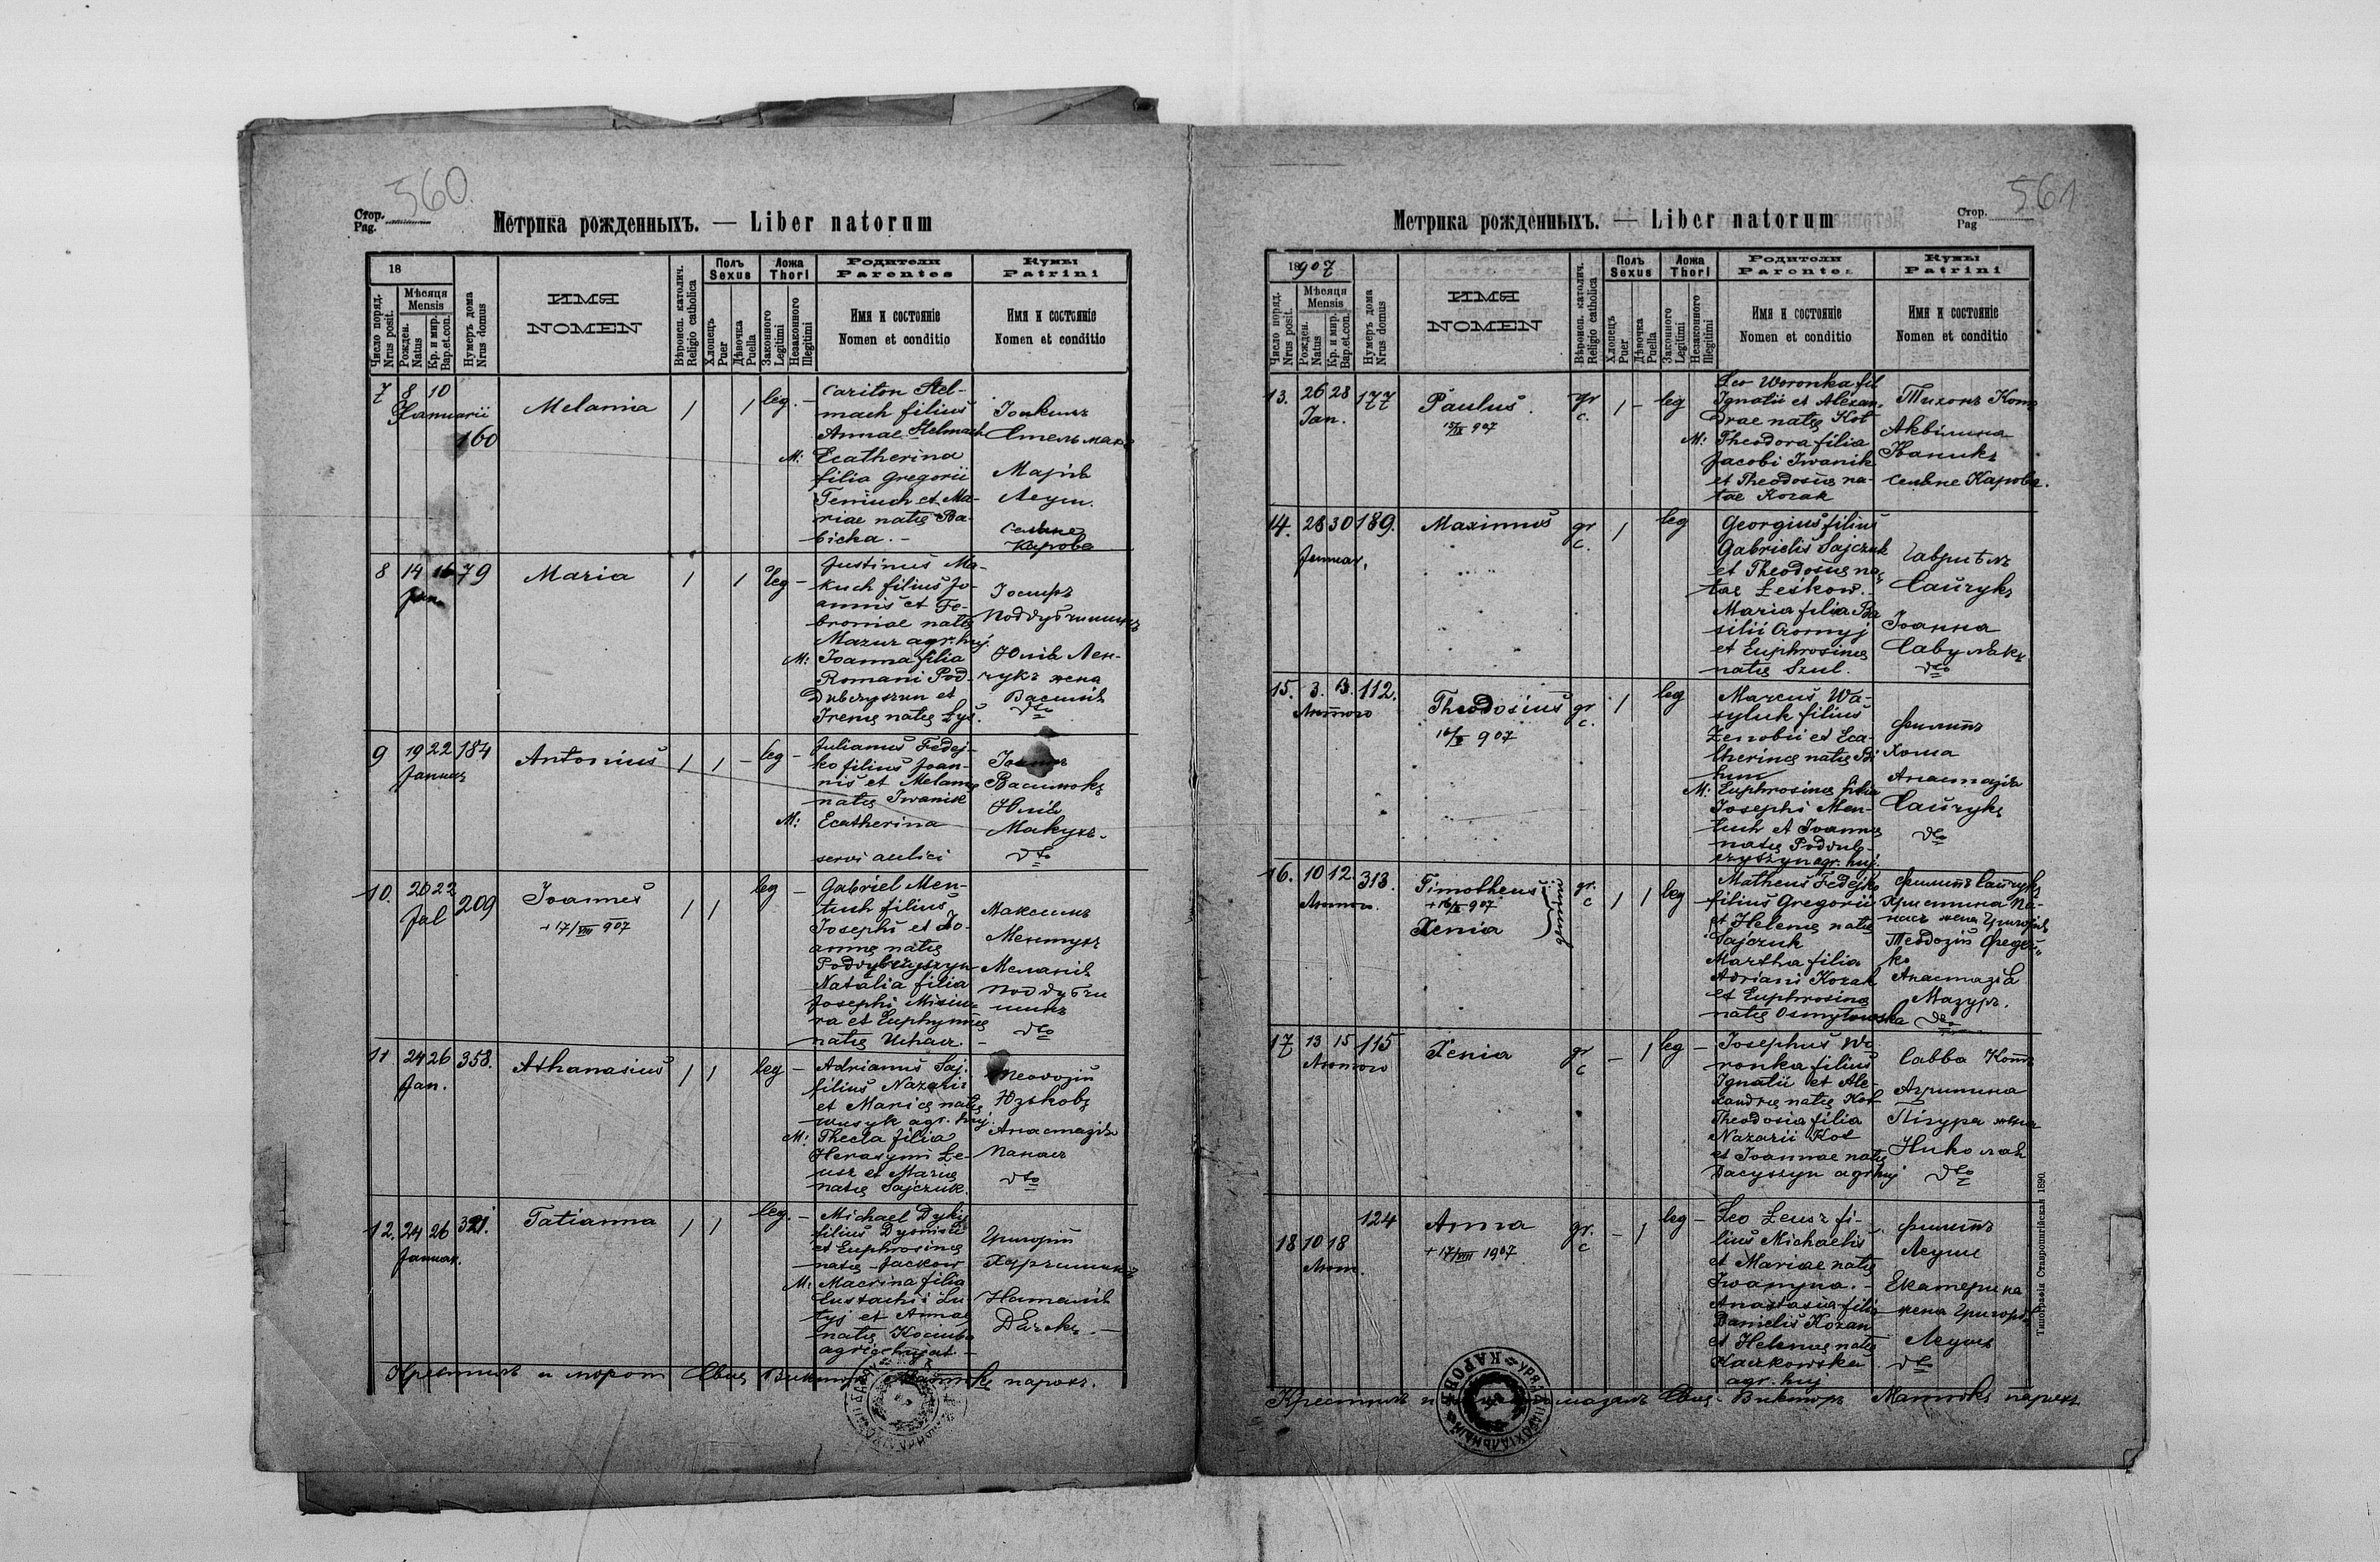 560
Стор.
Pag.
Метрика рожденныхъ. — Liber natorum
18
Число поряд.
Nrus posit.
Мѣсяця
Mensis
Рожден.
Natus
Кр. и мир.
Bap.et.con.
Нумеръ дома
Nrus domus
ИМЯ
NOMEN
Вѣроисп. католич.
Religio catholica
Полъ
Sexus
Хлопецъ
Puer
Дѣвочка
Puella
Ложа
Thori
Законного
Legitimi
Незаконного
Illegitimi
Родители
Parentes
Имя и состояніе
Nomen et conditio
Кумы
Patrini
Имя и состояніе
Nomen et conditio
7 8 10
Januarii
160
Melania
1 1 leg. -
Cariton Stel-
mach filius
Annae Stelmach
M: Ecatherina
filia Gregorii
et Ma-
riae natę Ba-
bicka. -
Марія
Леуш.
Селяне
Карова
8 14 16 79
Jan.
Maria
1 1 leg -
Justinus Ma-
kuch filius Jo-
annis et Fe-
broniae natę
Mazur agr. huj.
M: Joanna filia
Romani Pod-
dubczyszyn et
Irenę natę Łys.
Іосифъ
Поддубчишинъ
Юлія
жена
Василія
dto
9 19 22 184
Januar
Antonius
1 1 - leg -
Julianus Fedej-
ko filius Joan-
nis et Melanię
natę Iwanik
M: Ecatherina
servi aulici
Юлія
Макухъ.
dto
10. 20 22 209
Joannes
+ 17/VIII 907
1 1 leg -
Gabriel Men-
tuch filius
Josephi et Jo-
annę natę
Poddubczyszyn
Natalia filia
Josephi Misiu-
ra et Euphymię
natę
Максимъ
Ментухъ
Меланія
Поддубчи
шинъ
dto
11 24 26 358.
Jan.
Athanasius
1 1 leg -
Adrianus Saj.
filius Nazarii
et Marię natę
Wusyk agr. huj.
M: Thecla filia
Herasymi Le-
usz et Marię
natę Sajczuk.
Теодозій
Юзьковъ
Анастазія
Панасъ
dto
12. 24 26 321.
Januar.
Tatianna
1 1 leg. -
Michael Dykij
filius Dyonisii
et Euphrosinę
natę Jackow
M: Macrina filia
Eustachii Lu-
tyj et Annae
natę Kociuba
agric. hujat -
Григорій
Наталія
Крестилъ и мѵроп. Свщ. Викторъ Матюкъ парохъ.
561
Стор.
Pag
Метрика рожденныхъ. — Liber natorum
18907
Число поряд.
Nrus posit.
Мѣсяця
Mensis
Рожден.
Natus
Кр. и мир.
Bap.et.con.
Нумеръ дома
Nrus domus
ИМЯ
NOMEN
Вѣроисп. католич.
Religio catholica
Полъ
Sexus
Хлопецъ
Puer
Дѣвочка
Puella
Ложа
Thori
Законного
Legitimi
Незаконного
Illegitimi
Родители
Parentes
Имя и состояніе
Nomen et conditio
Кумы
Patrini
Имя и состояніе
Nomen et conditio
13. 26 28 177
Jan.
Paulus.
gr
c. 1 - leg
Leo Woronka fil
Ignatii et Alexan-
drae natę Kot
M: Theodora filia
Jacobi Iwanik
et Theodosię na-
tae Kozak
Тихонъ Котъ
Аквілина
Іваникъ
селяне Карова.
14. 28 30 189.
Januar.
Maximus
gr
c. 1 leg
Georgius filius
Gabrielis Sajczuk
et Theodosię na-
tae Leskow. -
Maria filia Ba
silii Czornyj
et Euphrosinę
natę Szul.
Гавриілъ
Сайчукъ
Іоанна
dto
15. 3. 13. 112.
Лютого
Theodosius
16/X 907
gr
c. 1 leg
Marcus Wa-
syluk filius
Zenobii et Eca-
therinę natę
M: Euphrosina filia
Josephi Men-
tuch et Joannę
natę Poddub-
czyszyn agr. huj.
Филипъ
Хома
Анастазія
Сайчукъ
dto
16. 10 12. 313.
Лютого.
Timotheus
Xenia
gemini
gr.
c 1 1 leg
Matheus Fedejko
filius Gregorii
et Helenę natę
Sajczuk
Martha filia
Adriani Kozak
et Euphrosinę
natę
Филипъ Сайчукъ
Христина Па-
насъ жена Григорія
Теодозій Федей-
ко
Анастазія
Мазуръ.
dto
17 13 15 115
Лютого
Xenia
gr
c - 1 leg -
Josephus Wo
ronka filius
Ignatii et Ale-
xandrę natę Kot
Theodosia filia
Nazarii Kot
et Joannae natę
Dacyszyn agr huj
Савва Котъ
Агрипина
Пігура жена
Николая
dto
18 10 18 124
Лют.
Anna
+ 17/VIII 1907
gr.
c - 1 leg -
Leo Leusz fi-
lius Michaelis
et Mariae natę
Anastasia filia
Danielis Kozan
et Helenae natę
Kaczkowska
agr. huj
Филипъ
Леуш
Екатерина
жена Григорія
Леушъ
dto
Крестилъ и Свщ. Викторъ Матюкъ парохъ
Типографія Ставропигійская 1890.